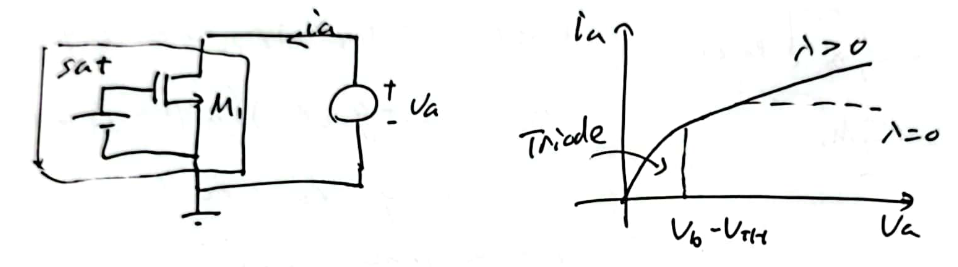 ia
sat
M₁
+
-
Va
ia
λ>0
λ=0
Triode
Vb-VTH
Va